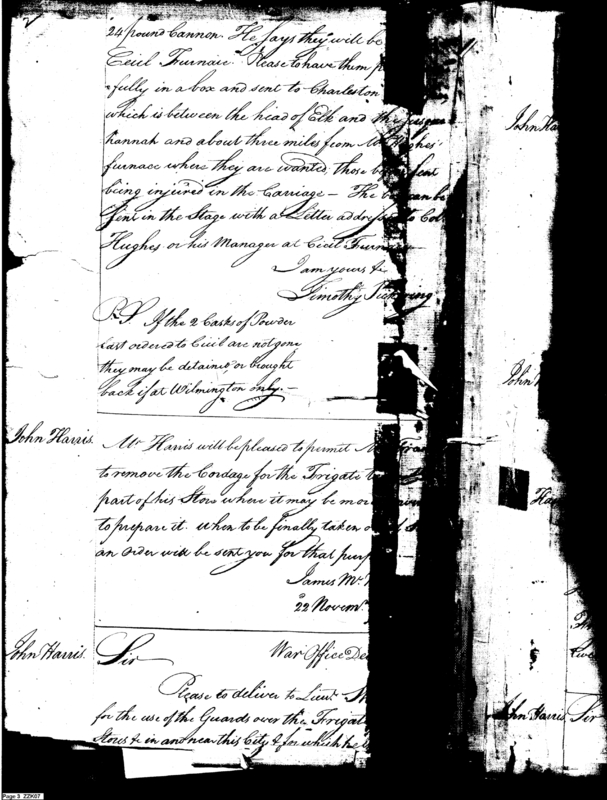 24 pound Cannon. He says they will be
Cecil Furnace. Please to have them
fully in a box and sent to Charleston
which is between the head of Elk and the Susque
hannah and about three miles from Mr Hughes'
furnace where they are wanted, those
being injured in the Carriage — The box can be
sent in the Stage with a Letter addressed to Col
Hughes or his Manager at Cecil Furnace
I am yours &
Timothy Pickering
P.S. If the 2 Casks of Powder
last ordered to Cecil are not gone
they may be detained or brought
back if at Wilmington only. —
John Harris.
Mr Harris will be pleased to permit Mr
to remove the Cordage for the Frigate
part of his Store where it may be more
to prepare it. when to be finally taken
an order will be sent you for that purp
James Mc.
22 Novemr
John Harris.
Sir
War Office De
Please to deliver to Lieut.
for the use of the Guards over the Frigate
Stores & in and near this City & for which he
John Ha
John
Ha
John Harris
Sir
Page 3 ZZK07